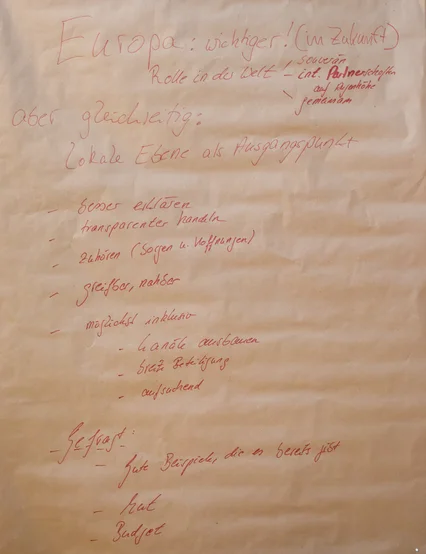 Europa: wichtiger! (in Zukunft)
Rolle in der Welt
- souverän
int. Partnerschaften
auf Augenhöhe
gemeinsam
aber gleichzeitig:
Lokale Ebene als Ausgangspunkt
- besser erklären
- transparenter handeln
- zuhören (Sorgen u. Hoffnungen)
- greifbar, nahbar
- möglichst inklusiv
- Kanäle ausbauen
- breite Beteiligung
- aufsuchend
- Gefragt:
- Gute Beispiele, die es bereits gibt
- Mut
- Budget